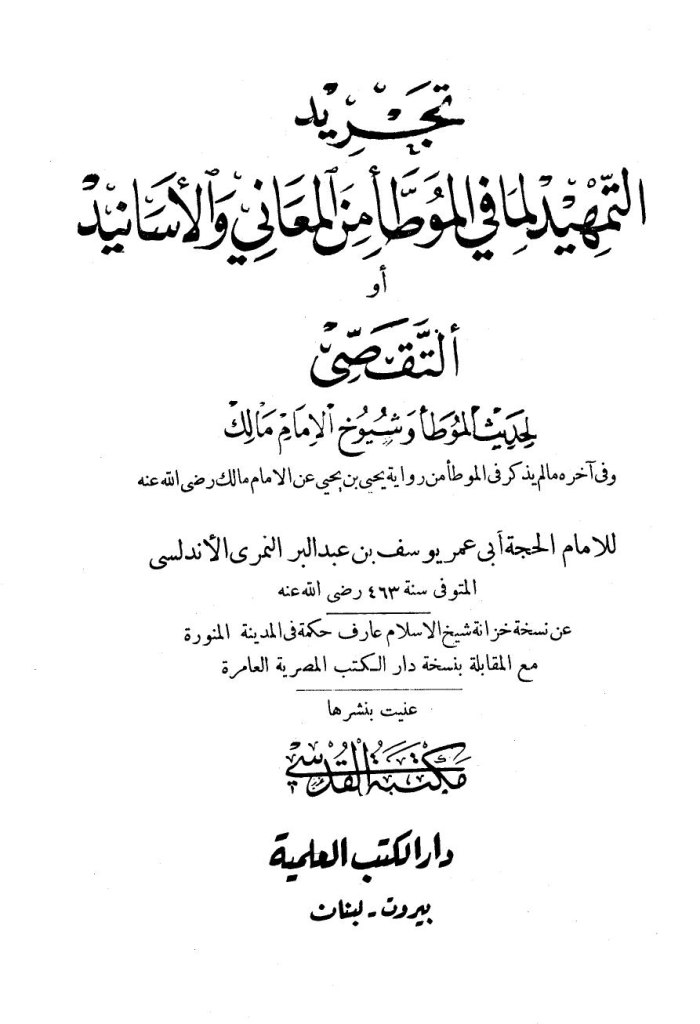 تجريد
التمهيد لما في الموطأ من المعاني والأسانيد
أو
ألتقصى
لحديث الموطأ وشيوخ الإمام مالك
وفى آخره مالم يذكر فى الموطأ من رواية يحيى بن يحيى عن الامام مالك رضى الله عنه
للامام الحجة أبى عمر يوسف بن عبد البر النمرى الأندلسى
المتوفى سنة ٤٦٣ رضى الله عنه
عن نسخة خزانة شيخ الاسلام عارف حكمة فى المدينة المنورة
مع المقابلة بنسخة دار الكتب المصرية العامرة
عنيت بنشرها
مكتبة القدسي
دار الكتب العلمية
بيروت - لبنان